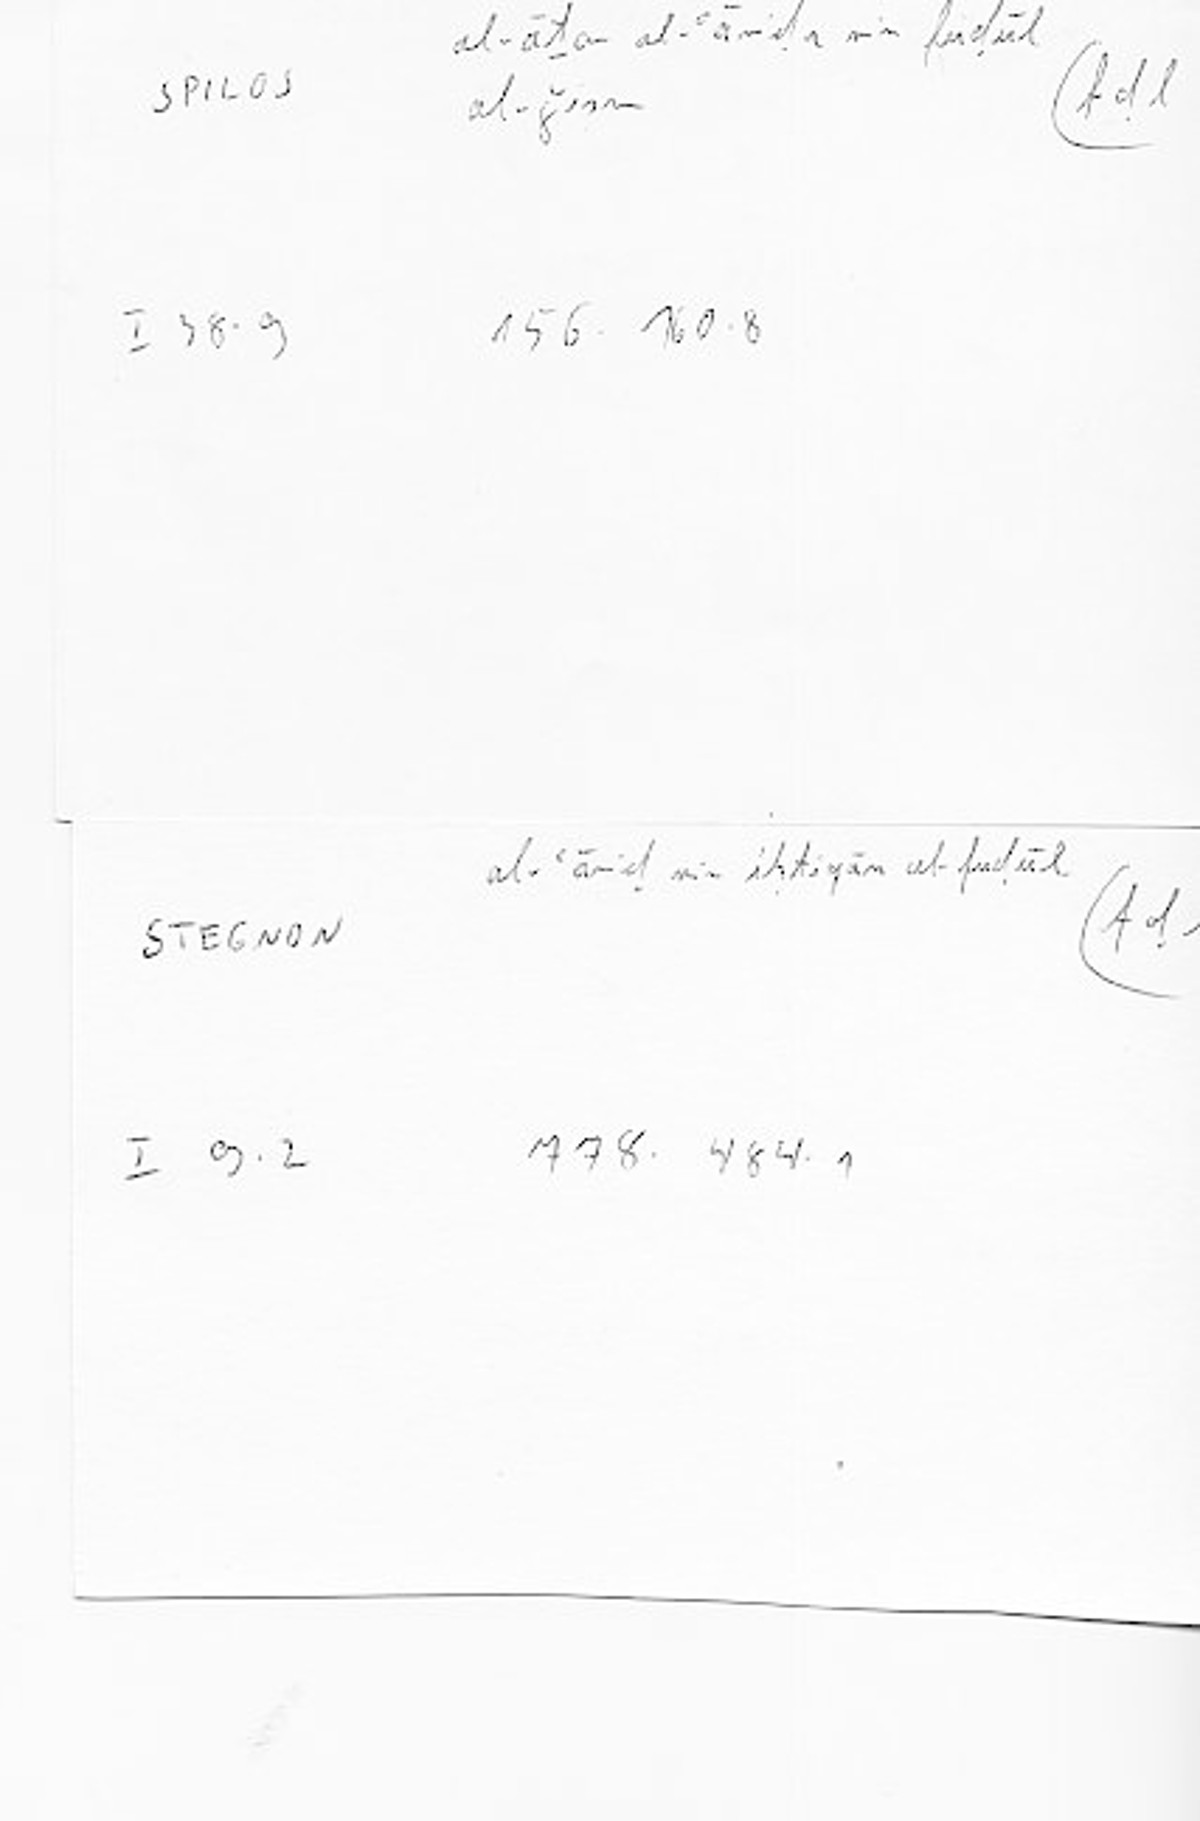 al-āṯār al-ʿāriḍa min fuḍūl
SPILOS
al-ǧism
(fḍl
I 38.9 156. 160.8
al-ʿāriḍ min iḥtiqān al-fuḍūl
STEGNON
(fḍ
I 9.2 778. 484.1